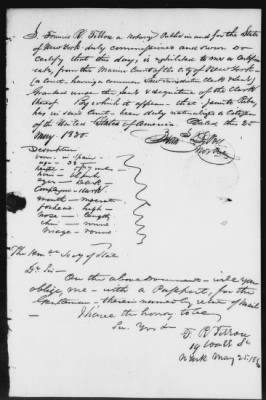 I, Francis R Tillou a Notary Public in and for the State
of New York duly commissioned and sworn Do
Certify that this day, is exhibited to me a Certifi-
cate, from the Marine Court of the city of New York
(a Court having a common Seal Jurisdiction Clerk & Seal)
Granted under the Seal & signature of the Clerk
thereof By which it appears that
has in said Court been duly naturalized a Citizen
of the United States of America Dated this 25
May 1830.
Description
born in Spain
age - 38
height - 5 ft
hair - black
eyes - black
Complexion - dark
mouth - 
forehead high
nose - 
chin - 
visage -
The Honble Secy of State
Dr Sir -
On the above Document - will you
oblige me - with a Passport, for the
Gentleman, therein named by return of mail
I have the honor to be
F. R Tillou
19 Wall St
N York May 25 18